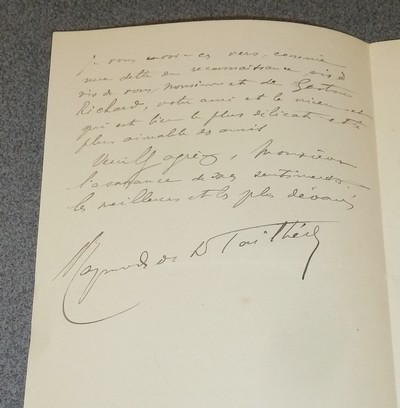 je vous envoie ces vers, comme
une dette de reconnaissance vis à
vis de vous, Monsieur et de Gaston
Richard, votre ami et le mien et
qui est bien le plus délicat et le
plus aimable des amis.
Veuillez agréer, Monsieur
l'assurance de mes sentiments
les meilleurs et les plus dévoués
Raymond de La Tailhède